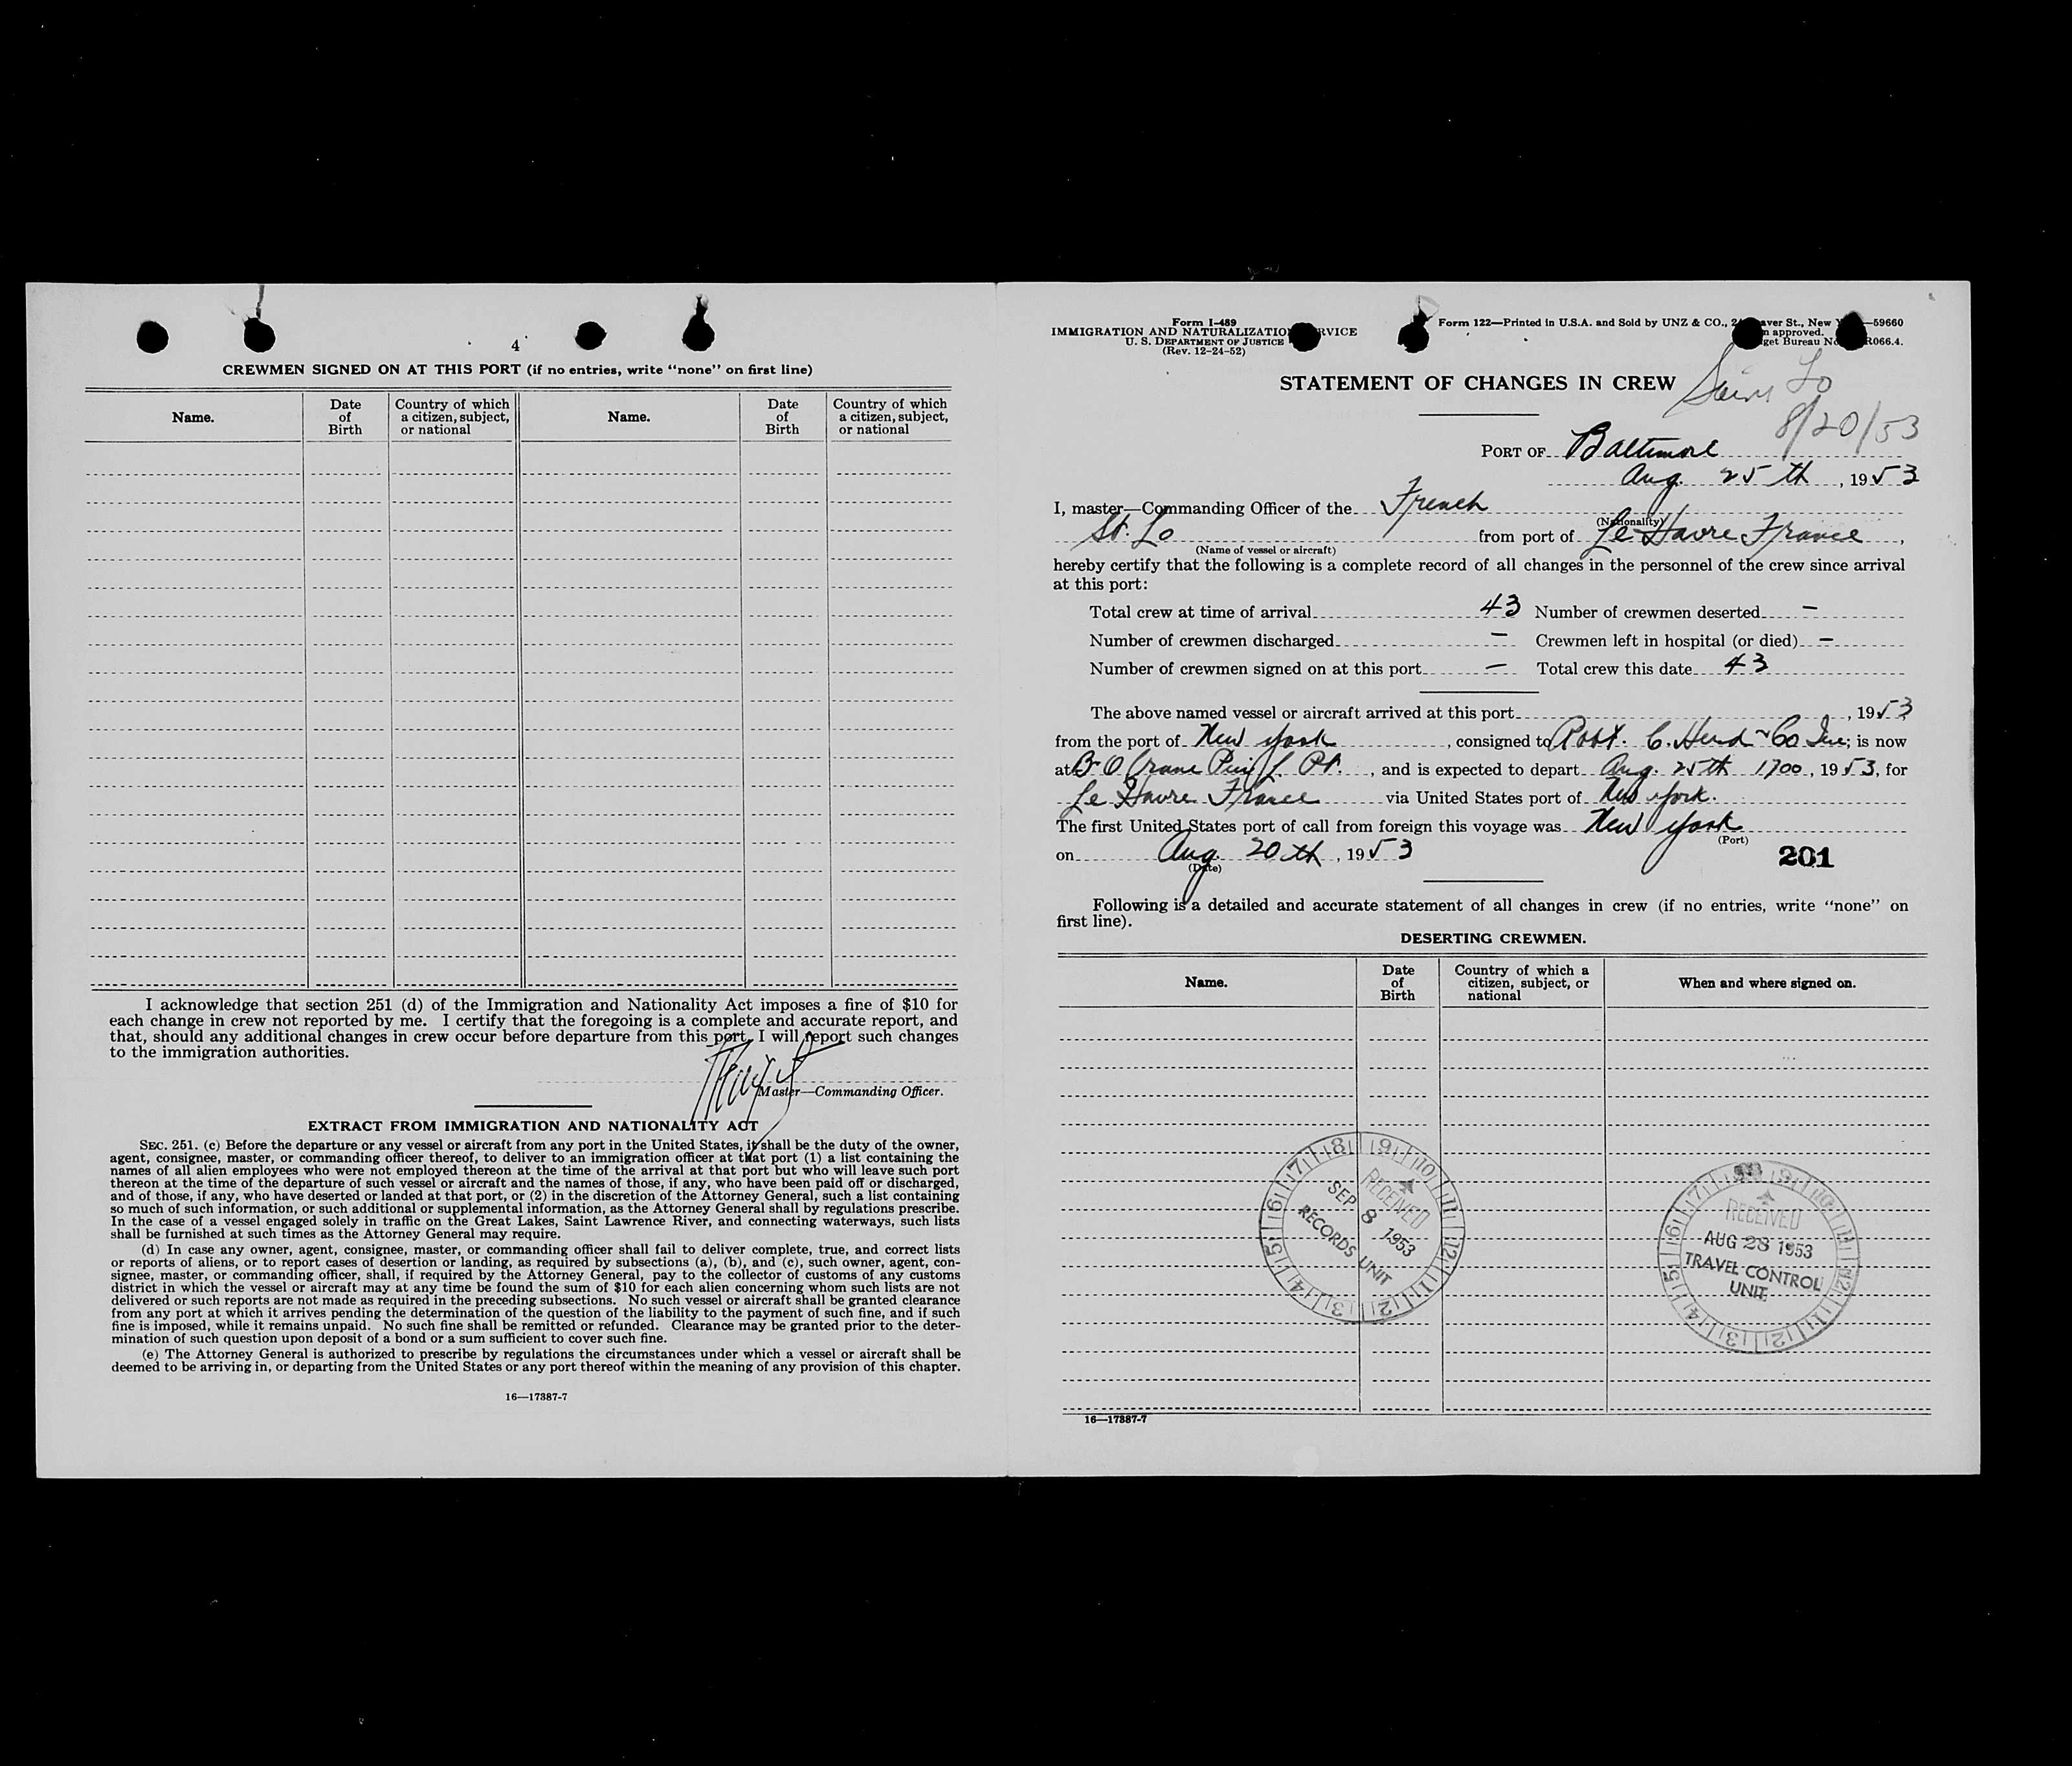 4
CREWMEN SIGNED ON AT THIS PORT (if no entries, write "none" on first line)
Name.
Date of Birth
Country of which a citizen, subject, or national
Name.
Date of Birth
Country of which a citizen, subject, or national
I acknowledge that section 251 (d) of the Immigration and Nationality Act imposes a fine of $10 for
each change in crew not reported by me. I certify that the foregoing is a complete and accurate report, and
that, should any additional changes in crew occur before departure from this port, I will report such changes
to the immigration authorities.
Master—Commanding Officer.
EXTRACT FROM IMMIGRATION AND NATIONALITY ACT
SEC. 251. (c) Before the departure or any vessel or aircraft from any port in the United States, it shall be the duty of the owner,
agent, consignee, master, or commanding officer thereof, to deliver to an immigration officer at that port (1) a list containing the
names of all alien employees who were not employed thereon at the time of the arrival at that port but who will leave such port
thereon at the time of the departure of such vessel or aircraft and the names of those, if any, who have been paid off or discharged,
and of those, if any, who have deserted or landed at that port, or (2) in the discretion of the Attorney General, such a list containing
so much of such information, or such additional or supplemental information, as the Attorney General shall by regulations prescribe.
In the case of a vessel engaged solely in traffic on the Great Lakes, Saint Lawrence River, and connecting waterways, such lists
shall be furnished at such times as the Attorney General may require.
(d) In case any owner, agent, consignee, master, or commanding officer shall fail to deliver complete, true, and correct lists
or reports of aliens, or to report cases of desertion or landing, as required by subsections (a), (b), and (c), such owner, agent, con-
signee, master, or commanding officer, shall, if required by the Attorney General, pay to the collector of customs of any customs
district in which the vessel or aircraft may at any time be found the sum of $10 for each alien concerning whom such lists are not
delivered or such reports are not made as required in the preceding subsections. No such vessel or aircraft shall be granted clearance
from any port at which it arrives pending the determination of the question of the liability to the payment of such fine, and if such
fine is imposed, while it remains unpaid. No such fine shall be remitted or refunded. Clearance may be granted prior to the deter-
mination of such question upon deposit of a bond or a sum sufficient to cover such fine.
(e) The Attorney General is authorized to prescribe by regulations the circumstances under which a vessel or aircraft shall be
deemed to be arriving in, or departing from the United States or any port thereof within the meaning of any provision of this chapter.
16—17387-7
Form I-489
IMMIGRATION AND NATURALIZATIO RVICE
U. S. DEPARTMENT OF JUSTICE
(Rev. 12-24-52)
Form 122—Printed in U.S.A. and Sold by UNZ & CO., 2 aver St., New —59660
n approved.
get Bureau No R066.4.
STATEMENT OF CHANGES IN CREW
Lo
8/20/53
PORT OF Baltimore
Aug. 25th, 1953
I, master—Commanding Officer of the French
(Nationality)
St. Lo from port of Le Havre France,
(Name of vessel or aircraft)
hereby certify that the following is a complete record of all changes in the personnel of the crew since arrival
at this port:
Total crew at time of arrival 43 Number of crewmen deserted —
Number of crewmen discharged — Crewmen left in hospital (or died) —
Number of crewmen signed on at this port — Total crew this date 43
The above named vessel or aircraft arrived at this port , 1953
from the port of New York, consigned to Robt. C. Herd & Co Inc; is now
at B O Crane Pier L. Pt., and is expected to depart Aug. 25th 1700, 1953, for
Le Havre France via United States port of New York.
The first United States port of call from foreign this voyage was New York
(Port)
on Aug 20th, 1953
(Date)
201
Following is a detailed and accurate statement of all changes in crew (if no entries, write "none" on
first line).
DESERTING CREWMEN.
Name.
Date of Birth
Country of which a citizen, subject, or national
When and where signed on.
RECEIVED
SEP 8 1953
RECORDS UNIT
RECEIVED
AUG 28 1953
TRAVEL CONTROL
UNIT
16—17387-7